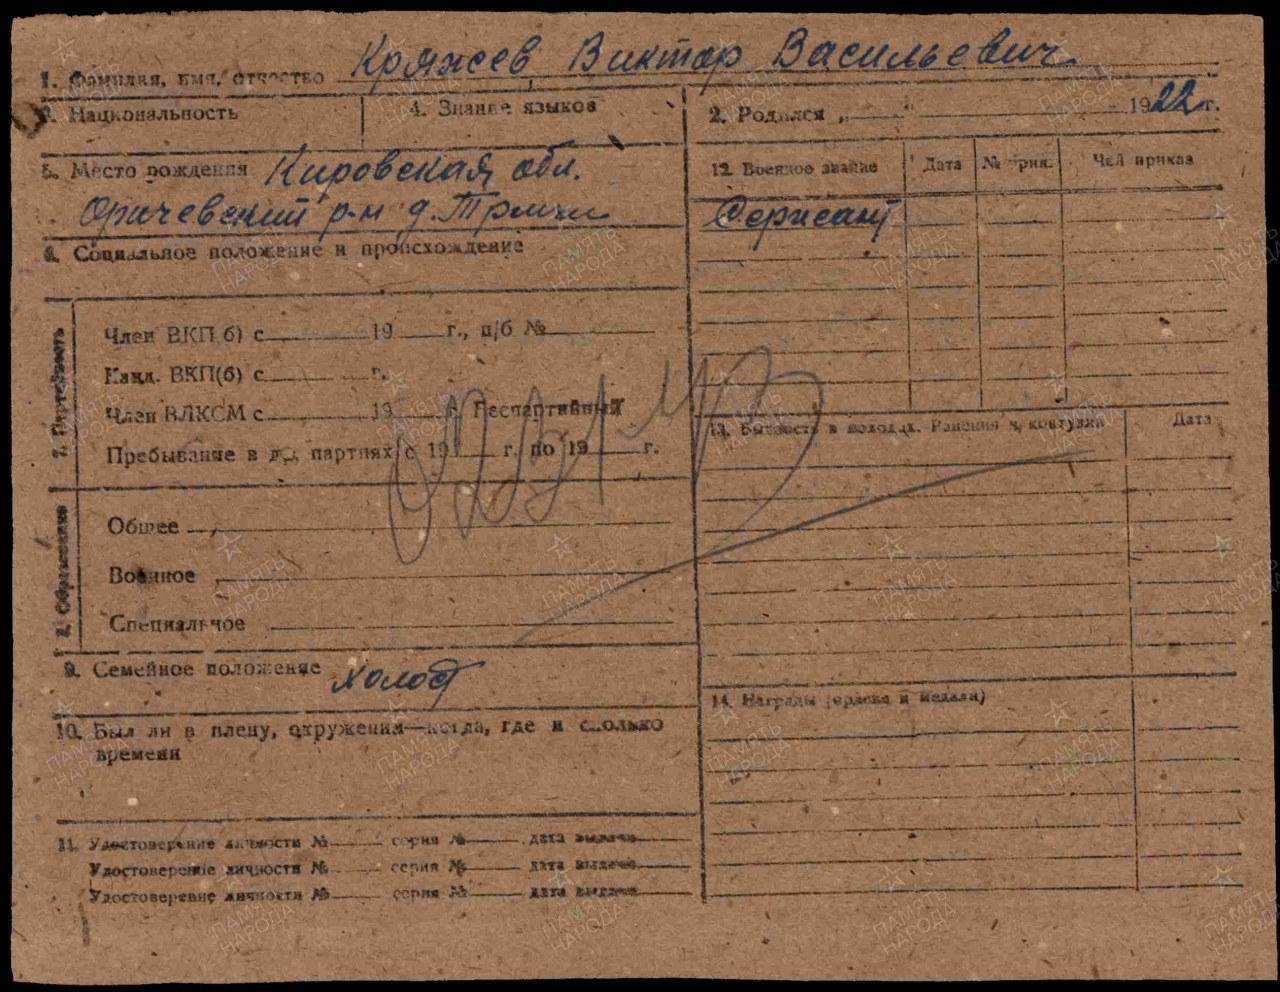 1. Фамилия, имя, отчество Кряжев Виктор Васильевич
3. Национальность
4. Знание языков
2. Родился „ " 1922 г.
5. Место рождения Кировская обл.
Оричевский р-н д.
6. Социальное положение и происхождение
7. Партийность
Член ВКП(б) с 19 г., п/б №
Канд. ВКП(б) с г.
Член ВЛКСМ с 19 г. Беспартийный
Пребывание в др. партиях с 19 г. по 19 г.
8. Образование
Общее
Военное
Специальное
9. Семейное положение холост
10. Был ли в плену, окружении—когда, где и сколько
времени
11. Удостоверение личности № серия № дата выдачи
Удостоверение личности № серия № дата выдачи
Удостоверение личности № серия № дата выдачи
12. Военное звание Дата № прик. Чей приказ
Сержант
13. Бытность в походах. Ранения и контузии Дата
14. Награды (ордена и медали)
ПАМЯТЬ
НАРОДА